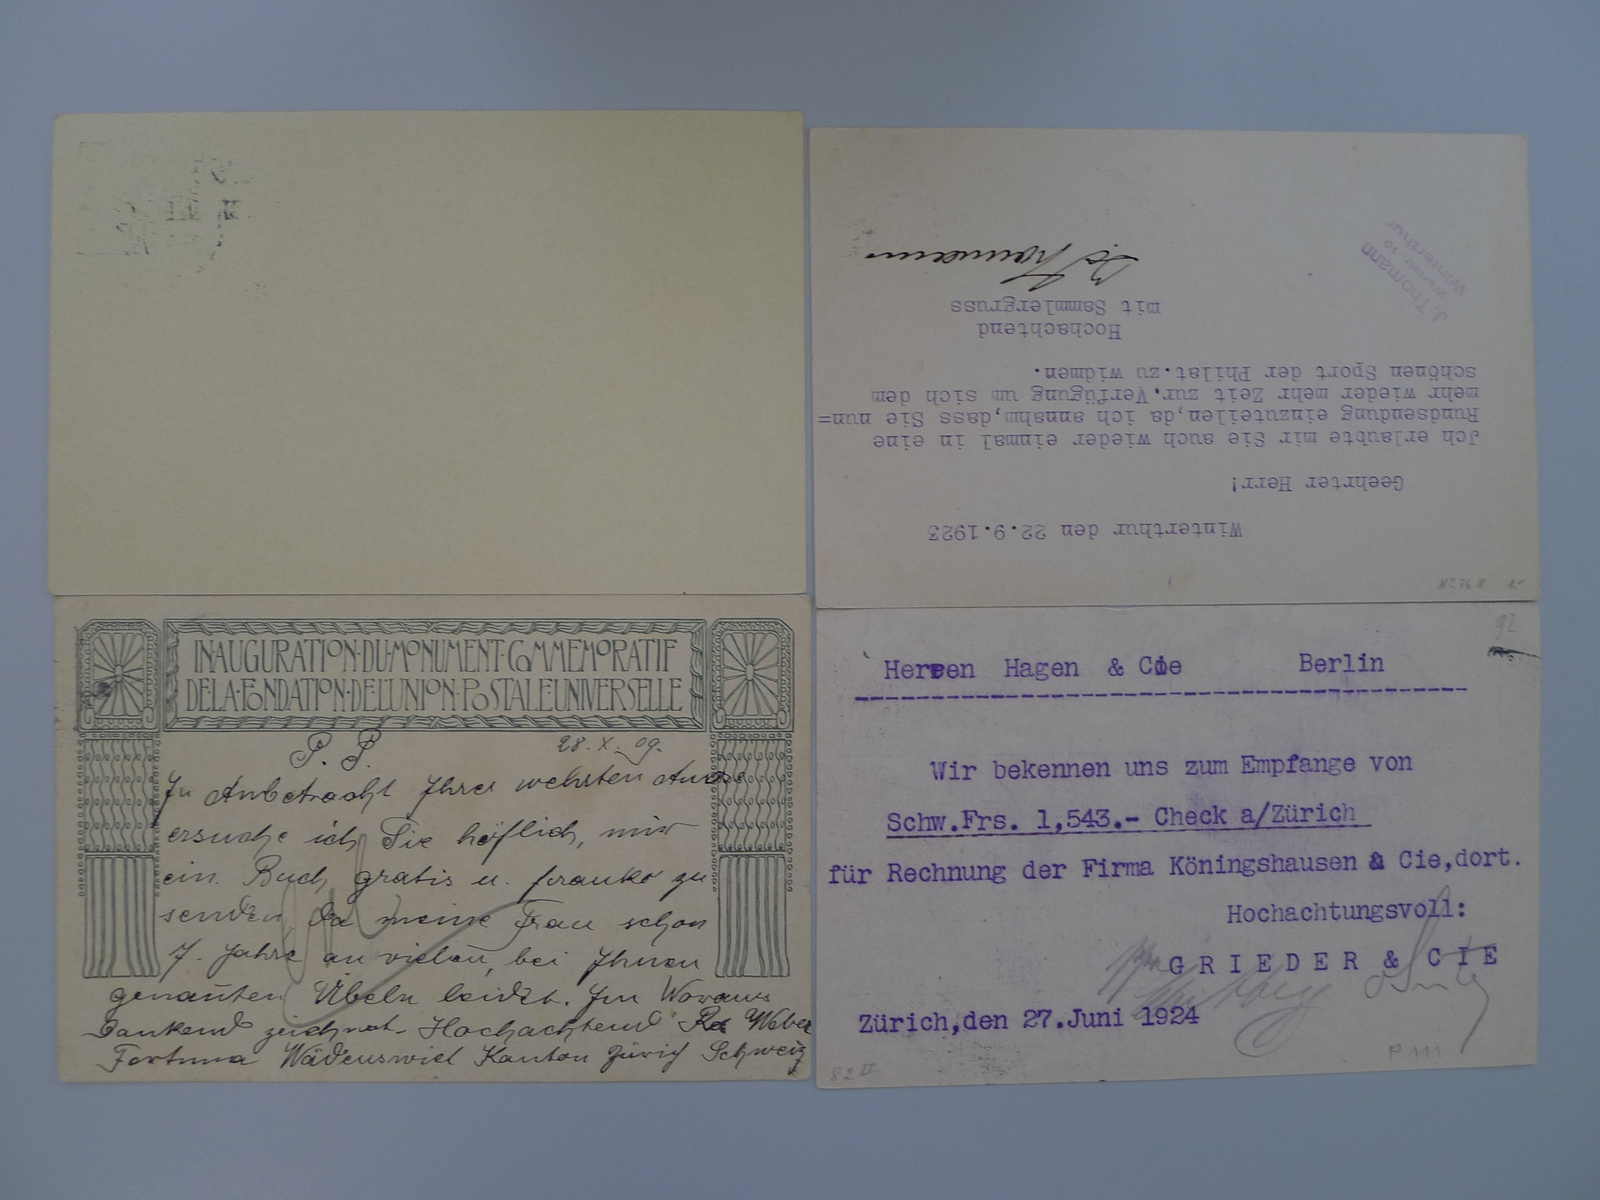 J. Thomann
Winterthur
Winterthur den 22.9.1923
Geehrter Herr!
Jch erlaubte mir Sie auch wieder einmal in eine
Rundsendung einzuteilen,da ich annahm,dass Sie nun=
mehr wieder mehr Zeit zur.Verfügung um sich dem
schönen Sport der Philat.zu widmen.
Hochachtend
mit Sammlergruss
Thomann
INAUGURATION·DU·MONUMENT·COMMEMORATIF
DE·LA·FONDATION·DE·L'UNION·POSTALE·UNIVERSELLE
P. P. 28. X. 09.
In Anbetracht Ihrer wehrten
ersuche ich Sie höflich, mir
ein Buch gratis u. franko zu
senden, da meine Frau schon
7. Jahre an vielen, bei Ihnen
genanten Übeln leidet. Im Voraus
Dankend zeichnet Hochachtend Weber
Fortuna Wädenswiel Kanton Zürich Schweiz
92
Herren Hagen & Cie Berlin
Wir bekennen uns zum Empfange von
Schw.Frs. 1,543.- Check a/Zürich
für Rechnung der Firma Köningshausen & Cie,dort.
Hochachtungsvoll:
GRIEDER & CIE
Zürich,den 27.Juni 1924
P 111
82 II